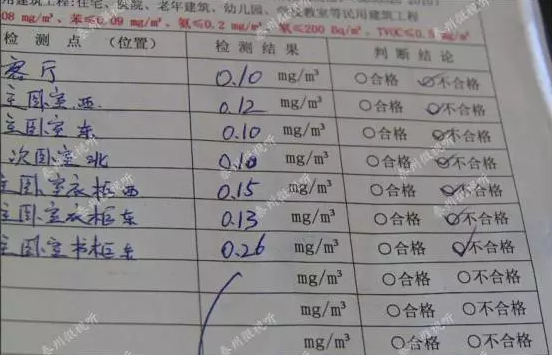 用建筑工程:住宅、医院、老年建筑、幼儿园、学校教室等民用建筑工程
08 mg/m³、苯≤0.09 mg/m³、氨≤0.2 mg/m³、氡≤200 Bq/m³、TVOC≤0.5 mg/m³
检 测 点 (位置) 检 测 结 果 判 断 结 论
客厅 0.10 mg/m³ ○合格 ○不合格
主卧室西 0.12 mg/m³ ○合格 ○不合格
主卧室东 0.10 mg/m³ ○合格 ○不合格
次卧室北 0.10 mg/m³ ○合格 ○不合格
主卧室衣柜西 0.15 mg/m³ ○合格 ○不合格
主卧室衣柜东 0.13 mg/m³ ○合格 ○不合格
主卧室书柜东 0.26 mg/m³ ○合格 ○不合格
mg/m³ ○合格 ○不合格
mg/m³ ○合格 ○不合格
mg/m³ ○合格 ○不合格
泰州微视听